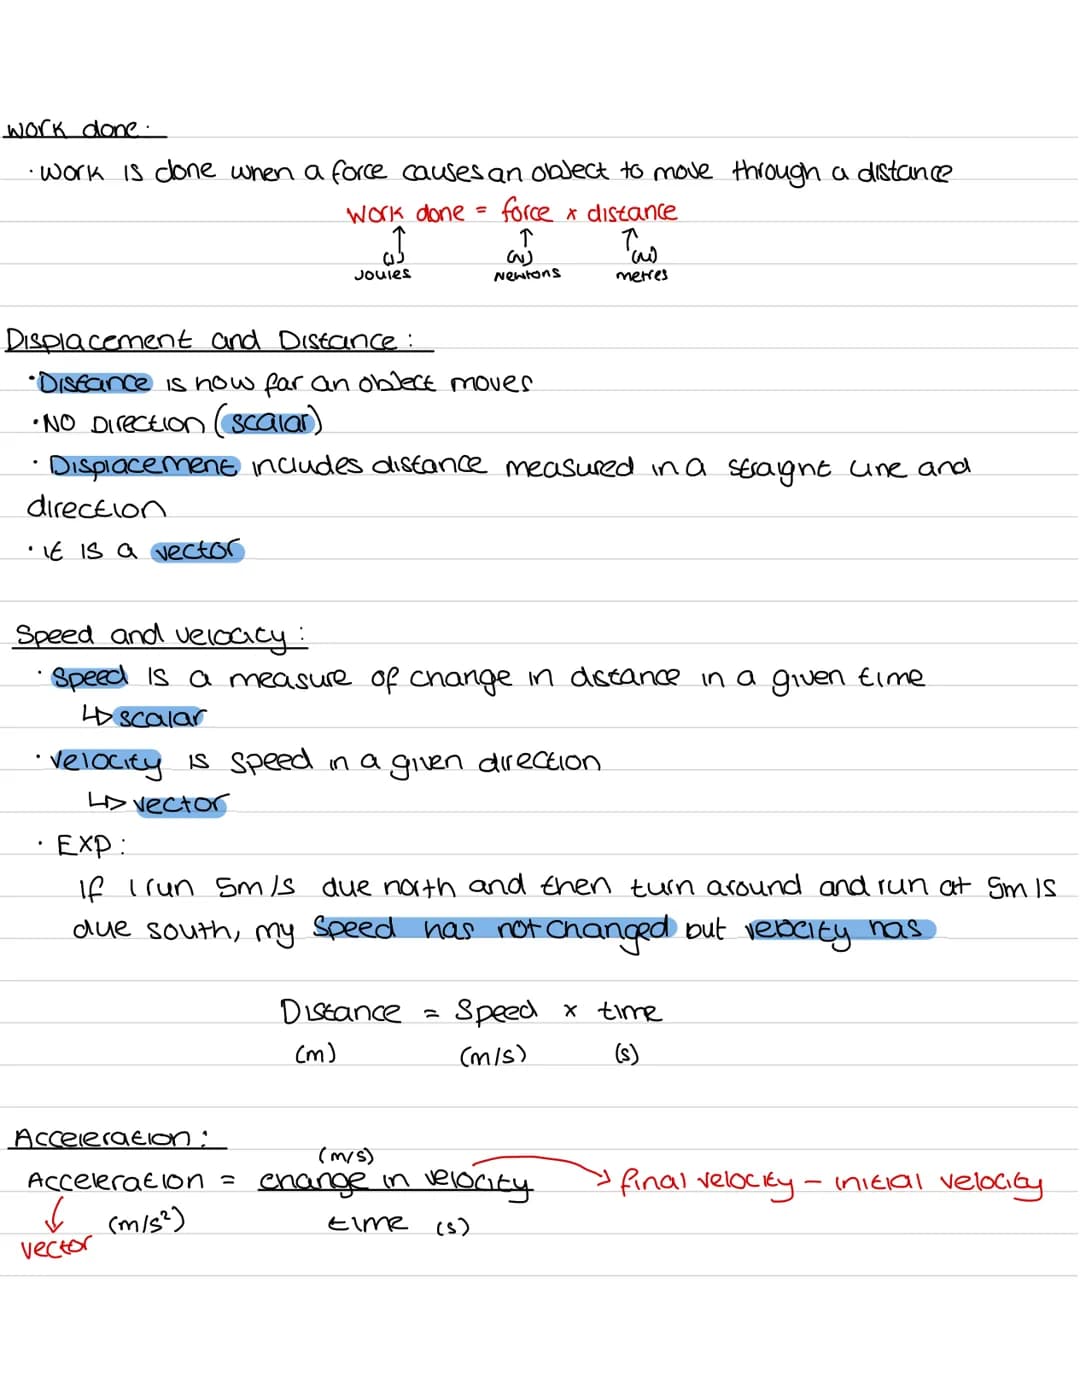 work done:
· work is done when a force causes an object to move through a distance
work done = force x distance
(J) (N) (m)
Joules Newtons metres
Displacement and Distance:
· Distance is how far an object moves
· NO Direction (scalar)
· Displacement includes distance measured in a straight line and
direction
· it is a vector
Speed and velocity:
· Speed is a measure of change in distance in a given time
↳ scalar
· velocity is speed in a given direction
↳ vector
· EXP:
If I run 5m/s due north and then turn around and run at 5m/s
due south, my speed has not changed but velocity has
Distance = Speed x time
(m) (m/s) (s)
Acceleration:
(m/s)
Acceleration = change in velocity → final velocity - initial velocity
(m/s²) time (s)
vector